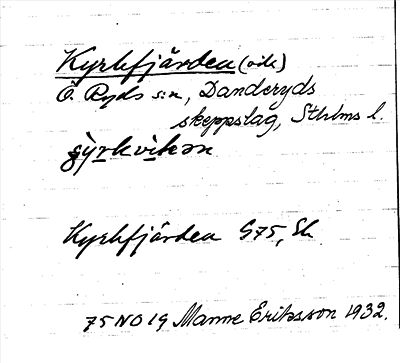 Kyrkfjärden (vik)
Ö. Ryds s:n, Danderyds
skeppslag, Sthlms l.
Kyrkfjärden G75, Sk
75 NO 19 Manne Eriksson 1932.